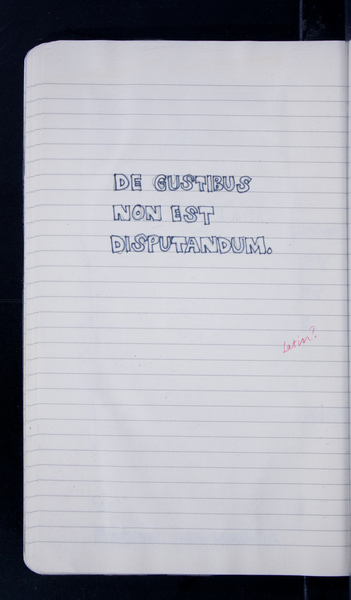 DE GUSTIBUS
NON EST
DISPUTANDUM.
Latin?